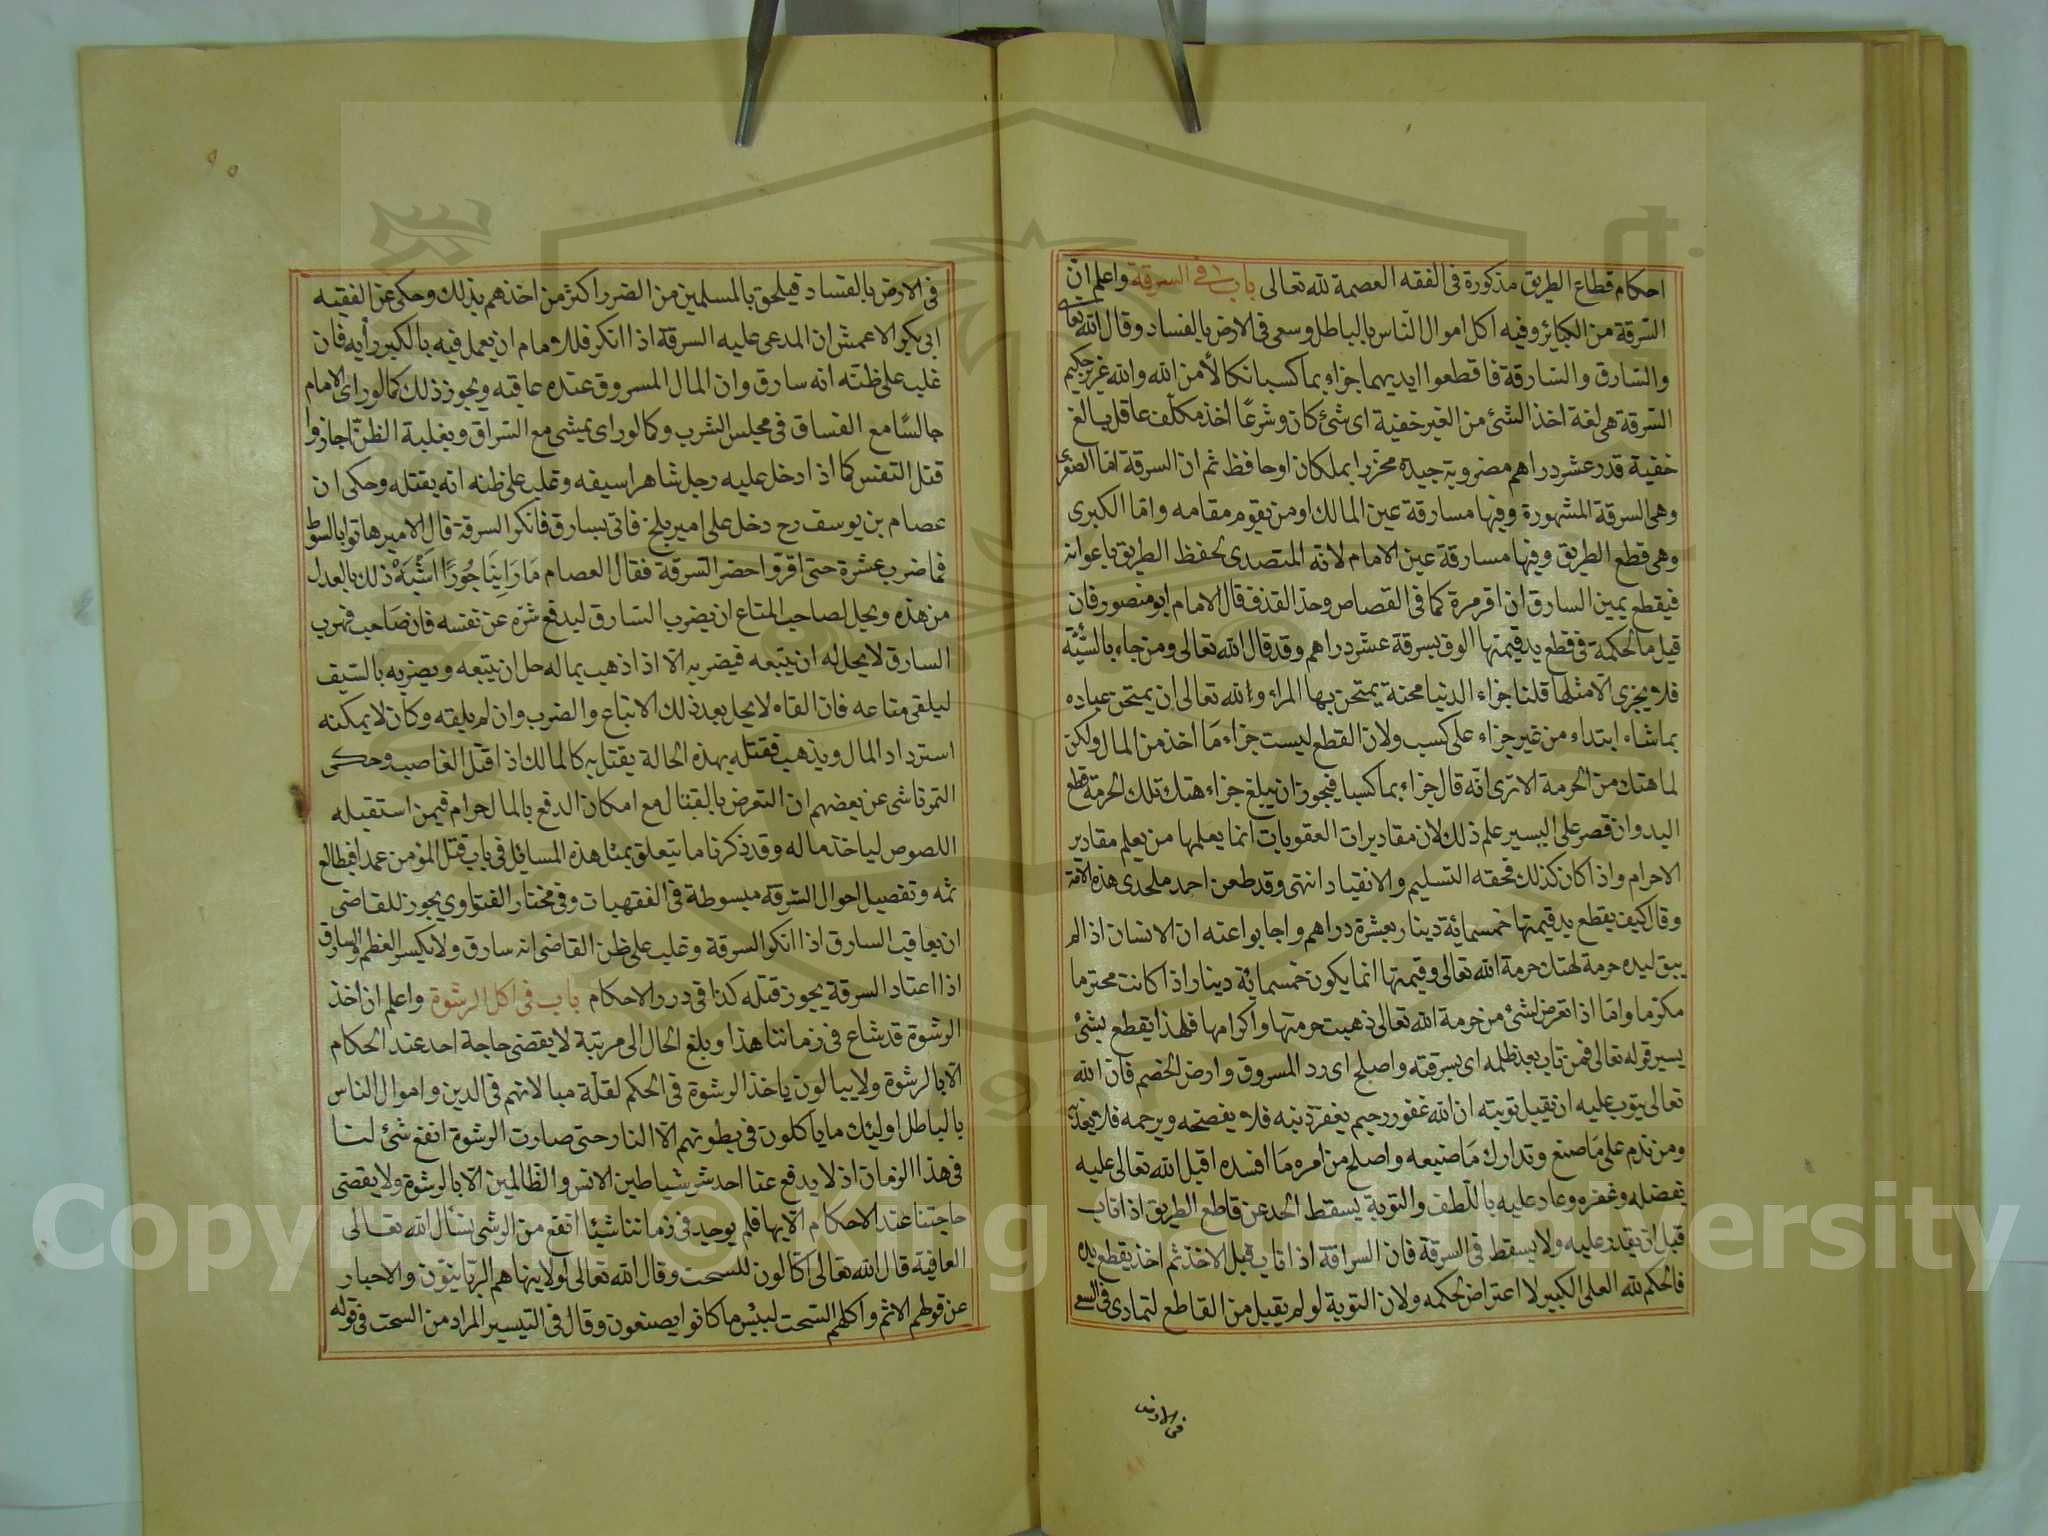 احكام قطاع الطريق مذكورة فى الفقه العصمة لله تعالى باب فى السرقة واعلم ان
السّرقة من الكبائر وفيه اكل اموال النّاس بالباطل وسعى فى الارض بالفساد وقال الله تعالى
والسّارق والسّارقة فاقطعوا ايديهما جزاء بما كسبا نكالاً من الله والله عزيز حكيم
السّرقة هى لغة اخذ الشئ من الغير خفية اى شئ كان وشرعًا اخذ مكلّف عاقل بالغ
خفية قدر عشر دراهم مضروبة جيدة محرّزا بمكان او حافظ ثم ان السرقة امّا الصغرى
وهى السرقة المشهورة وفيها مسارقة عين المالك او من يقوم مقامه وامّا الكبرى
وهى قطع الطريق وفيها مسارقة عين الامام لانّه المتصدى لحفظ الطريق باعوانه
فيقطع يمين السارق ان اقر مرة كما فى القصاص وحدّ القذف قال الامام ابو منصور فان
قيل ما الحكمة فى قطع يد قيمتها الوف بسرقة عشر دراهم وقد قال الله تعالى ومن جاء بالسّيّئة
فلا يجزى الّا مثلها قلنا جزاء الدنيا محنة يمتحن بها المراء ولله تعالى ان يمتحن عباده
بما شاء ابتداء من غير جزاء على كسب ولان القطع ليست جزاء مَا اخذ من المال ولكن
لما هتك من الحرمة الا ترى انّه قال جزاء بما كسبا فيجوز ان يبلغ جزاء هتك تلك الحرمة قطع
اليد وان قصر على اليسير علم ذلك لان مقاديرات العقوبات انما يعلمها من يعلم مقادير
الاجرام واذا كان كذلك فحقه التسليم والانقياد انتهى وقد طعن احمد ملحدى هذه الامّة
وقال كيف يقطع يد قيمتها خمسمائة دينار بعشرة دراهم واجابوا عنه ان الانسان اذا لم
يبق ليده حرمة لهتك حرمة الله تعالى وقيمتها انما يكون خمسمائة دينار اذا كانت محترما
مكرّما وامّا اذا تعرض لشئ من حرمة الله تعالى ذهبت حرمتها واكرامها فلهذا يقطع بشئ
يسير قوله تعالى فمن تاب بعد ظلمه اى بسرقته واصلح اى رد المسروق وارض الخصم فان الله
تعالى يتوب عليه ان يقبل توبته ان الله غفور رحيم يغفر ذنبه فلا يفضحه ويرحمه فلا يعذّبه
ومن ندم على مَا صنع وتدارك مَا ضيعه واصلح من امره مَا افسده اقبل الله تعالى عليه
بفضله وغفره وعاد عليه باللّطف والتوبة يسقط الحد عن قاطع الطريق اذا تاب
قبل ان يقدر عليه ولا يسقط فى السرقة فان السراقة اذا تاب قبل الاخذ ثم اخذ يقطع يده
فالحكم لله العلى الكبير لا اعتراض لحكمه ولان التوبة لو لم يقبل من القاطع لتمادى فى السعى
فى الارض
فى الارض بالفساد فيلحق بالمسلمين من الضرر اكثر من اخذهم بذلك وحكى عن الفقيه
ابى بكر الاعمش ان المدعى عليه السرقة اذا انكر فللامام ان يعمل فيه بالكبر رأيه فان
غلب على ظنّه انه سارق وان المال المسروق عنده عاقبه ويجوز ذلك كما لو راى الامام
جالسًا مع الفساق فى مجلس الشرب وكما لو راى يمشى مع السّراق وبغلبة الظنّ اجازوا
قتل النفس كما اذا دخل عليه رجل شاهرا سيفه وغلب على ظنه انه يقتله وحكى ان
عصام بن يوسف رح دخل على امير بلخ فاتى بسارق فانكر السرقة قال الامير هاتوا بالسوط
فما ضرب عشرة حتى اقرّ واحضر السّرقة فقال العصام مَا رَاَيْنَا جُورًا اَشْبَهْ ذلك بالعدل
من هذه ويحل لصاحب المتاع ان يضرب السّارق ليدفع شرّه عن نفسه فان صَاحب فهرب
السارق لا يحل له ان يتبعه فيضربه الّا اذا ذهب بماله حل ان يتبعه ويضربه بالسّيف
ليلقى متاعه فان القاه لا يحل بعد ذلك الاتباع والضرب وان لم يلقه وكان لا يمكنه
استرداد المال ويذهب فقتله بهذه الحالة يقتل به كالمالك اذا قتل الغاصب وحكى
التمرتاشى عن بعضهم ان التعرض بالقتال مع امكان الدفع بالمال حرام فيمن استقبله
اللصوص لياخذ ماله وقد ذكرنا ما يتعلق بمثل هذه المسائل فى باب قتل المؤمن عمدا فطالع
ثمه وتفصيل احوال السّرقة مبسوطة فى الفقهيات وفى مختار الفتاوى يجوز للقاضى
ان يعاقب السارق اذا انكر السرقة وغلب على ظن القاضى انه سارق ولا يكسر العظم والسارق
اذا اعتاد السرقة يجوز قتله كذا فى درر الاحكام باب فى اكل الرشوة واعلم ان اخذ
الرشوة قد شاع فى زماننا هذا وبلغ الحال الى مرتبة لا يقضى حاجة احد عند الحكام
الا بالرشوة ولا يبالون ياخذ الرشوة فى الحكم لقلّة مبالاتهم فى الدين واموال الناس
بالباطل اوليئك ما يأكلون فى بطونهم الّا النار حتى صارت الرشوة انفع شئ لنا
فى هذا الزمان اذ لا يدفع عنا احد شر شياطين الانس والظّالمين الّا بالرشوة ولا يقضى
حاجتنا عند الاحكام الّا بها فلم يوجد فى زماننا شيئا انفع من الرشى نسأل الله تعالى
العافية قال الله تعالى اكّالون للسحت وقال الله تعالى لولا ينهاهم الربّانيّون والاحبار
عن قولهم الاثم واكلهم السّحت لبئس ما كانوا يصنعون وقال فى التيسير المراد من السحت فى قوله
Copyright © King Saud University